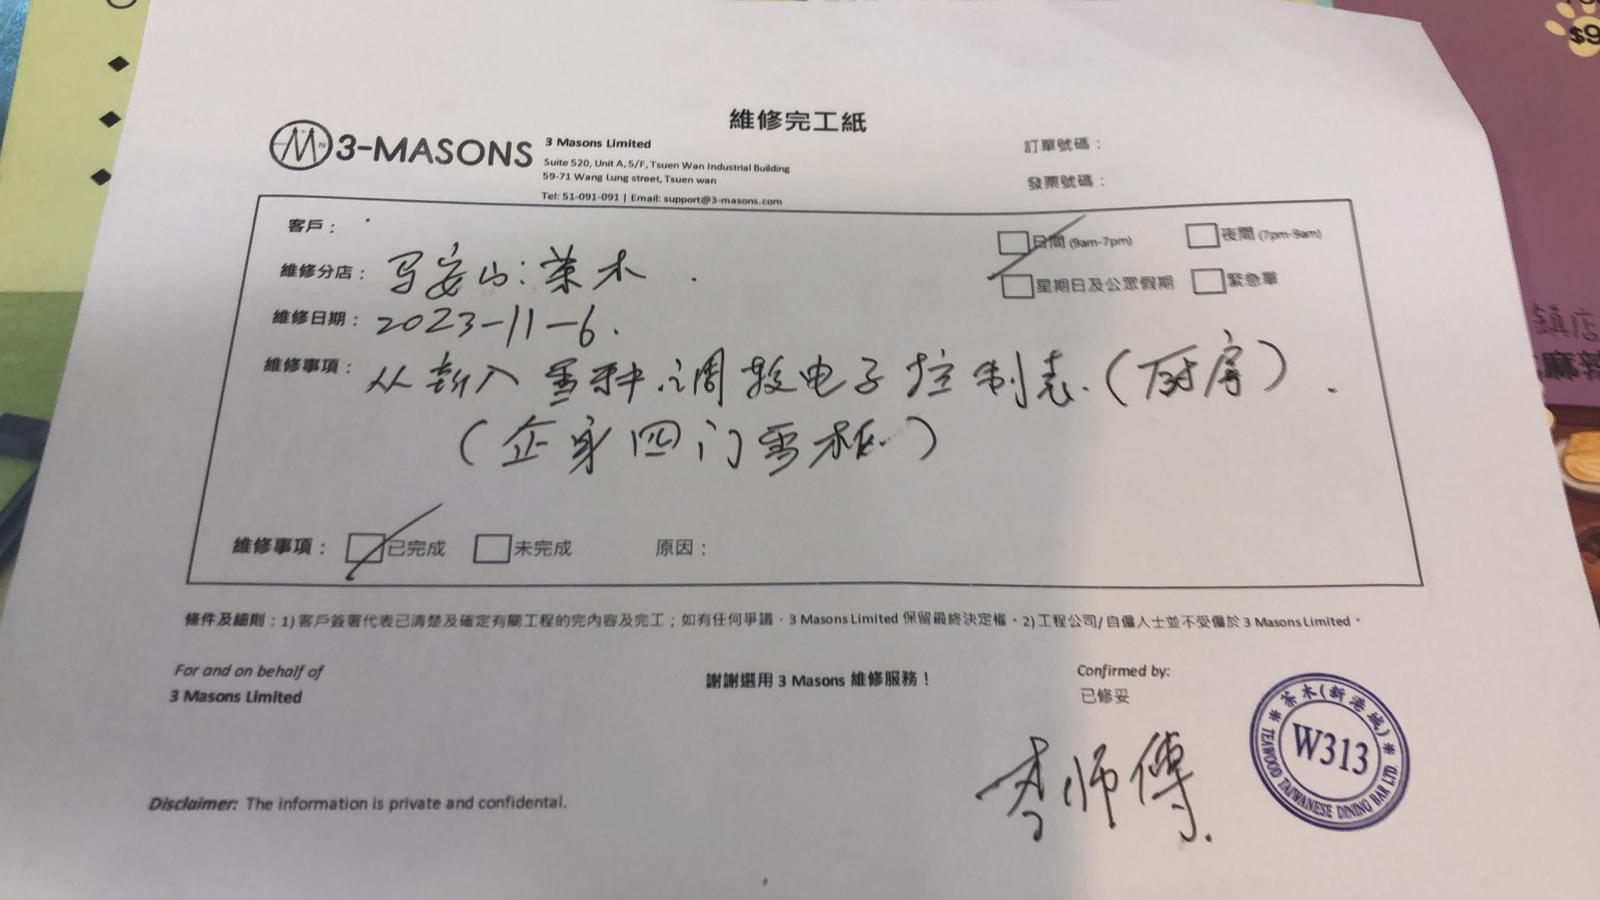 維修完工紙
3-MASONS
3 Masons Limited
Suite 520, Unit A, 5/F, Tsuen Wan Industrial Building
59-71 Wang Lung street, Tsuen wan
Tel: 51-091-091 | Email: support@3-masons.com
訂單號碼：
發票號碼：
客戶：
日間 (9am-7pm)
夜間 (7pm-9am)
維修分店：马安山：茶木
星期日及公眾假期
緊急單
維修日期：2023-11-6.
維修事項：从新入雪种.调教电子控制表.(厨房).
(企身四门雪柜)
維修事項：
已完成
未完成
原因：
條件及細則：1) 客戶簽署代表已清楚及確定有關工程的完內容及完工；如有任何爭議，3 Masons Limited 保留最終決定權。2) 工程公司/自僱人士並不受僱於 3 Masons Limited。
For and on behalf of
3 Masons Limited
謝謝選用 3 Masons 維修服務！
Confirmed by:
已修妥
李师傅.
茶木(新港城)
W313
TEAWOOD TAIWANESE DINING BAR LTD.
Disclaimer: The information is private and confidental.
$9
镇店
麻辣